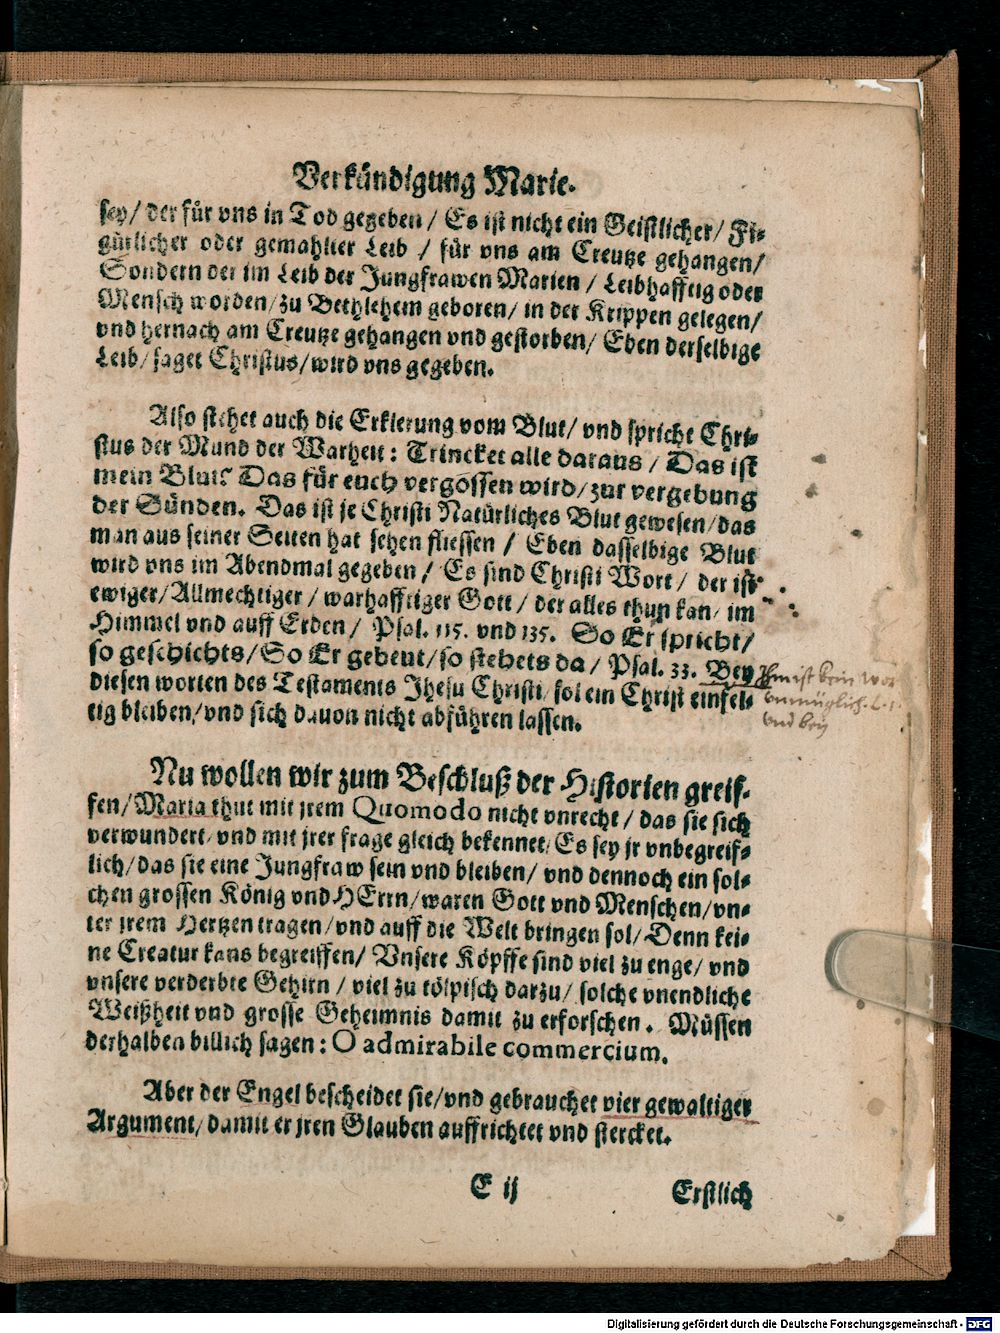 Verkündigung Marie.
sey/ der für vns in Tod gegeben/ Es ist nicht ein Geistlicher/ Fi-
gürlicher oder gemahlter Leib / für vns am Creutze gehangen/
Sondern der im Leib der Jungfrawen Marien / Leibhafftig oder
Mensch worden/ zu Bethlehem geboren/ in der Krippen gelegen/
vnd hernach am Creutze gehangen vnd gestorben/ Eben derselbige
Leib/ saget Christus/ wird vns gegeben.
Also stehet auch die Erklerung vom Blut/ vnd spricht Chri-
stus der Mund der Warheit: Trincket alle daraus / Das ist
mein Blut? Das für euch vergossen wird/ zur vergebung
der Sünden. Das ist je Christi Natürliches Blut gewesen/ das
man aus seiner Seiten hat sehen fliessen / Eben dasselbige Blut
wird vns im Abendmal gegeben / Es sind Christi Wort / der ist
ewiger/ Allmechtiger / warhafftiger Gott / der alles thun kan/ im
Himmel vnd auff Erden/ Psal. 115. vnd 135. So Er spricht/
so geschichts/ So Er gebeut/ so stehets da/ Psal. 33. Bey
diesen worten des Testaments Jhesu Christi/ sol ein Christ einfel-
tig bleiben/ vnd sich dauon nicht abführen lassen.
Ihm ist kein wor
vnmüglich. L. 1.
vnd bey
Nu wollen wir zum Beschluß der Historien greif-
fen/ Maria thut mit jrem Quomodo nicht vnrecht / das sie sich
verwundert/ vnd mit jrer frage gleich bekennet/ Es sey jr vnbegreif-
lich/ das sie eine Jungfraw sein vnd bleiben/ vnd dennoch ein sol-
chen grossen König vnd HErrn/ waren Gott vnd Menschen/ vn-
ter jrem Hertzen tragen/ vnd auff die Welt bringen sol/ Denn kei-
ne Creatur kans begreiffen/ Vnsere Köpffe sind viel zu enge/ vnd
vnsere verderbte Gehirn / viel zu tölpisch darzu/ solche vnendliche
Weißheit vnd grosse Geheimnis damit zu erforschen. Müssen
derhalben billich sagen: O admirabile commercium.
Aber der Engel bescheidet sie/ vnd gebrauchet vier gewaltiger
Argument/ damit er jren Glauben auffrichtet vnd stercket.
E ij
Erstlich
Digitalisierung gefördert durch die Deutsche Forschungsgemeinschaft - DFG